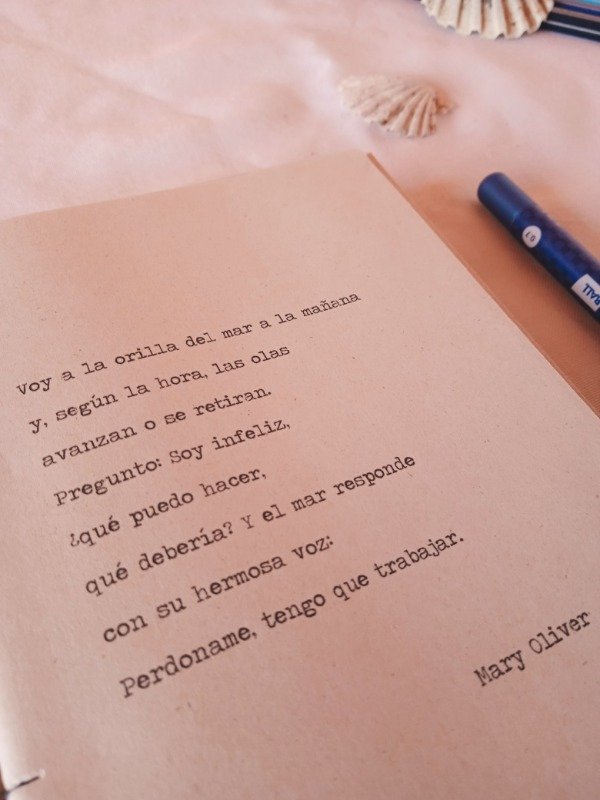 voy a la orilla del mar a la mañana
y, según la hora, las olas
avanzan o se retiran.
Pregunto: Soy infeliz,
¿qué puedo hacer,
qué debería? Y el mar responde
con su hermosa voz:
Perdoname, tengo que trabajar.
Mary Oliver
0.7
BALL